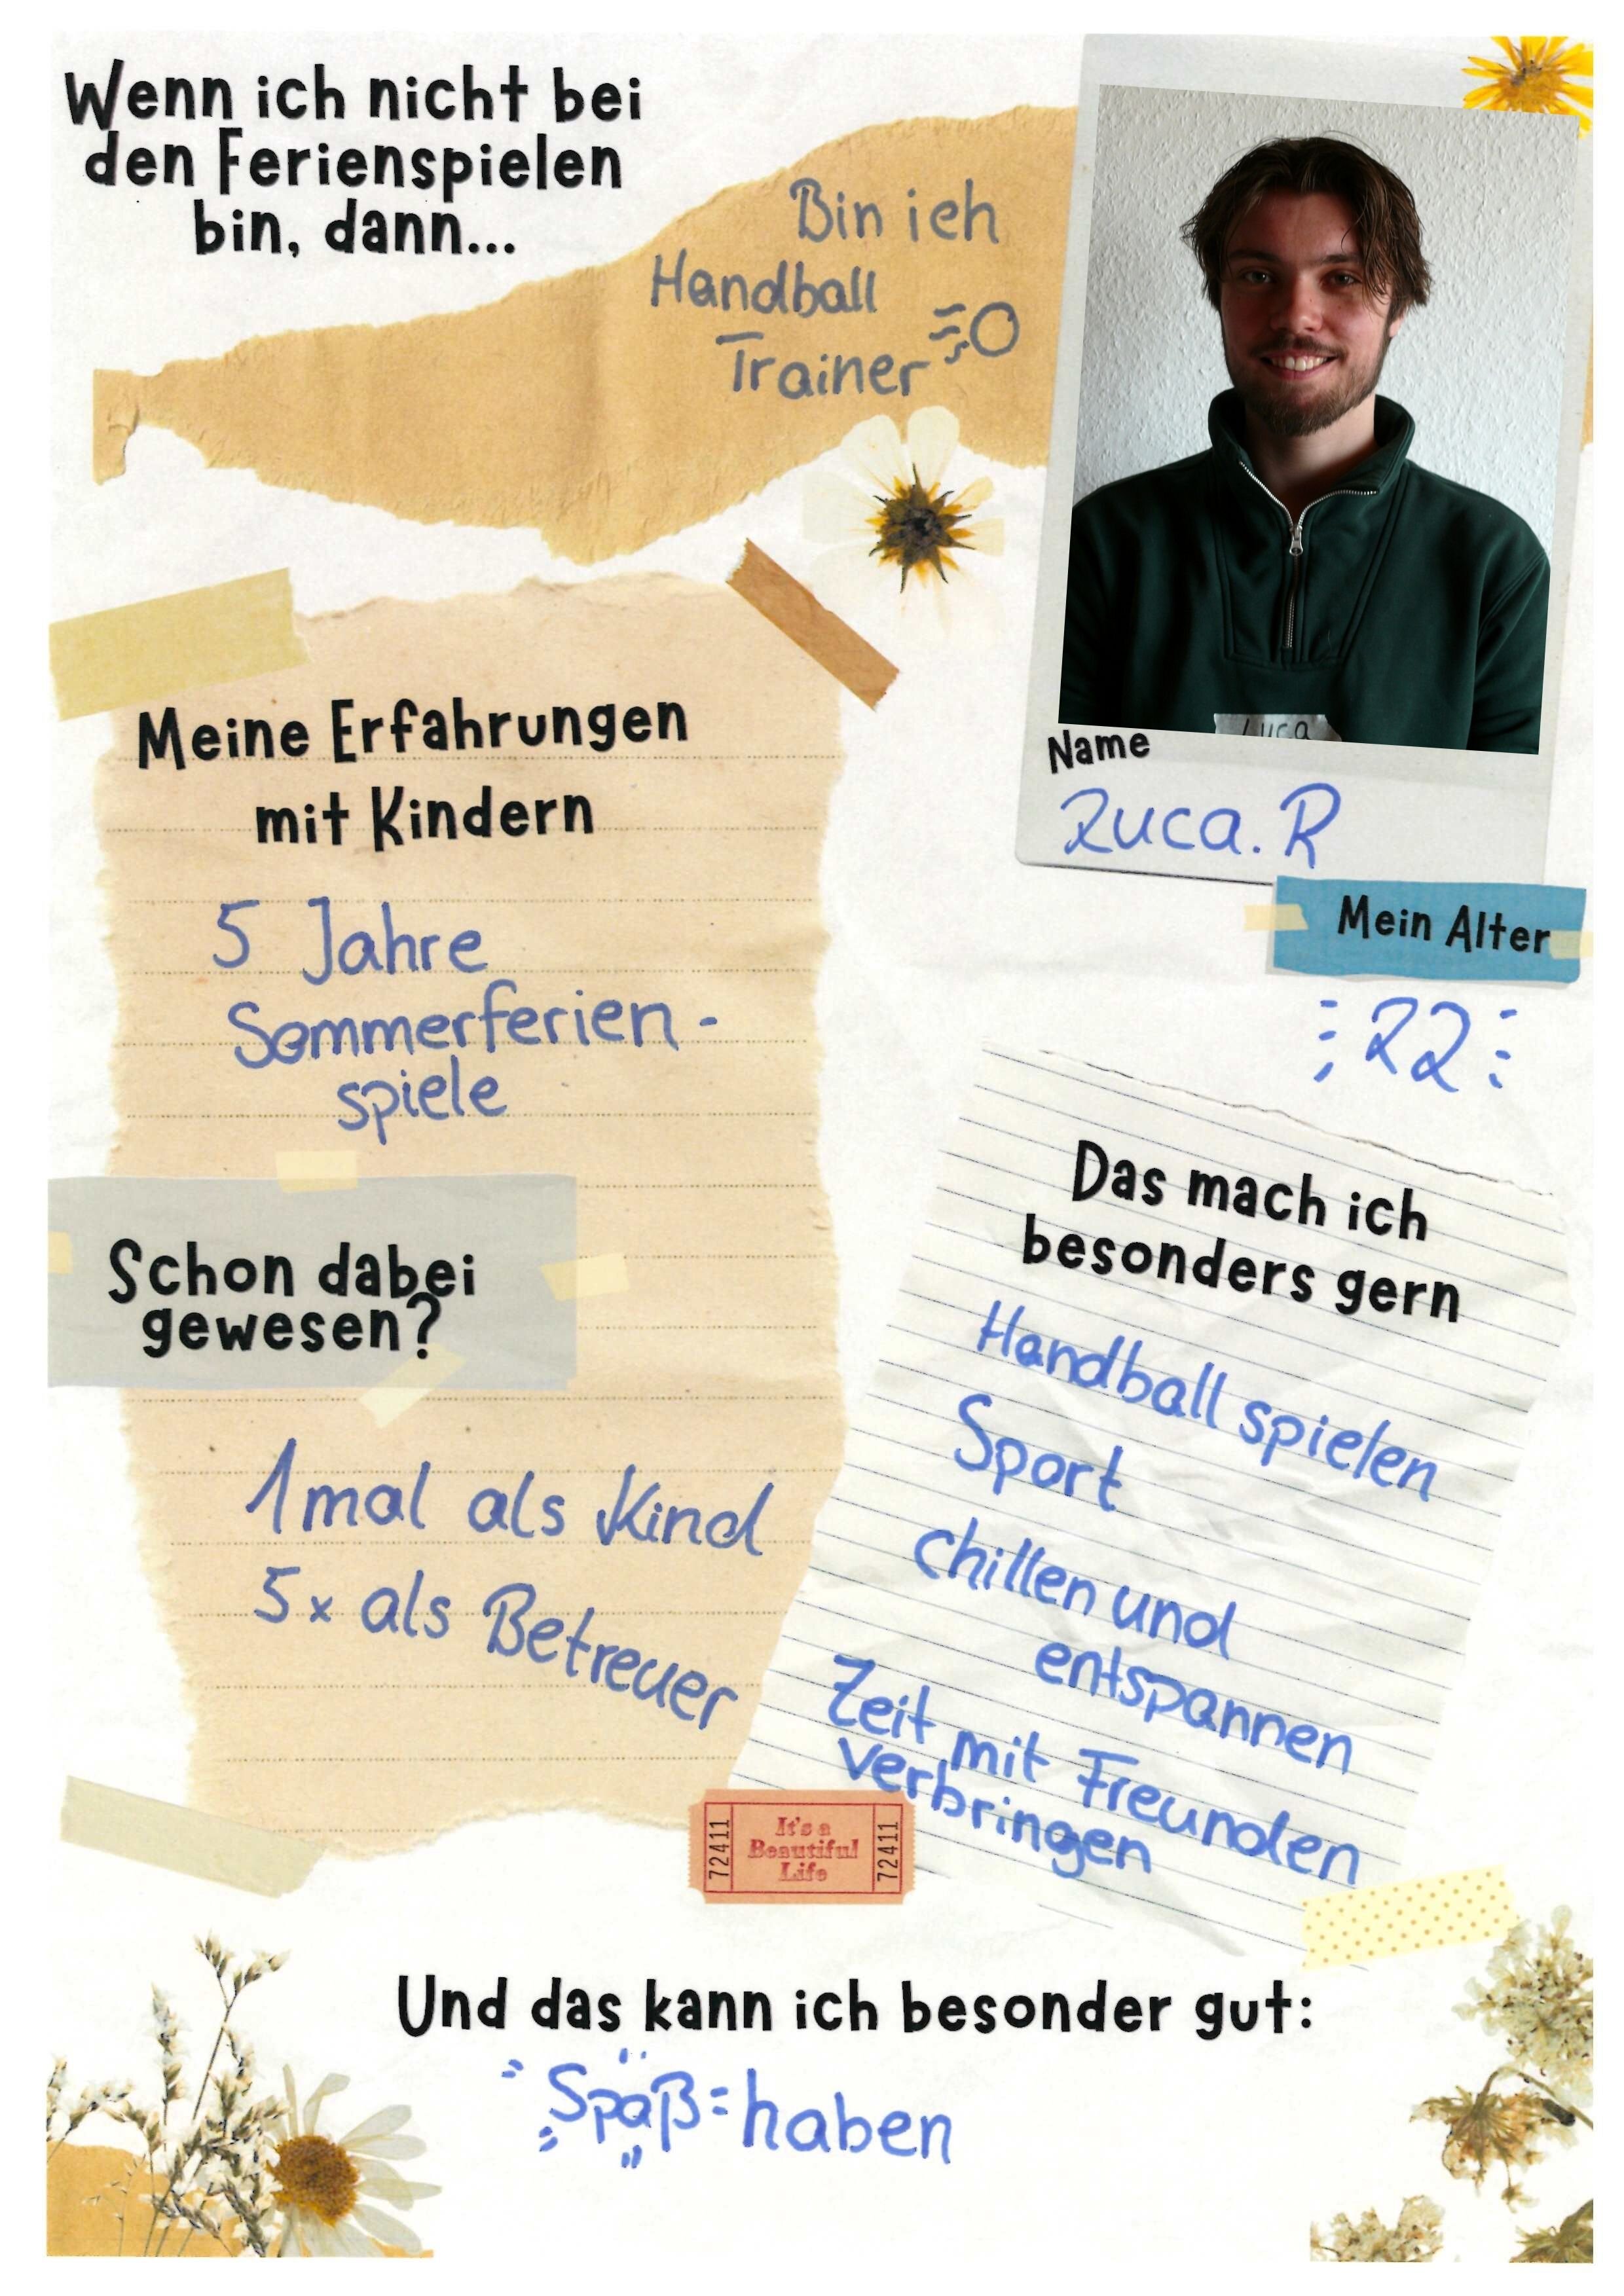 Wenn ich nicht bei
den Ferienspielen
bin, dann...
Bin ich
Handball
Trainer
Luca
Name
Luca.R
Mein Alter
22
Meine Erfahrungen
mit Kindern
5 Jahre
Sommerferien-
spiele
Schon dabei
gewesen?
1mal als Kind
5x als Betreuer
Das mach ich
besonders gern
Handball spielen
Sport
chillen und
entspannen
Zeit mit Freunden
verbringen
72411
It's a
Beautiful
Life
72411
Und das kann ich besonder gut:
Spaß haben